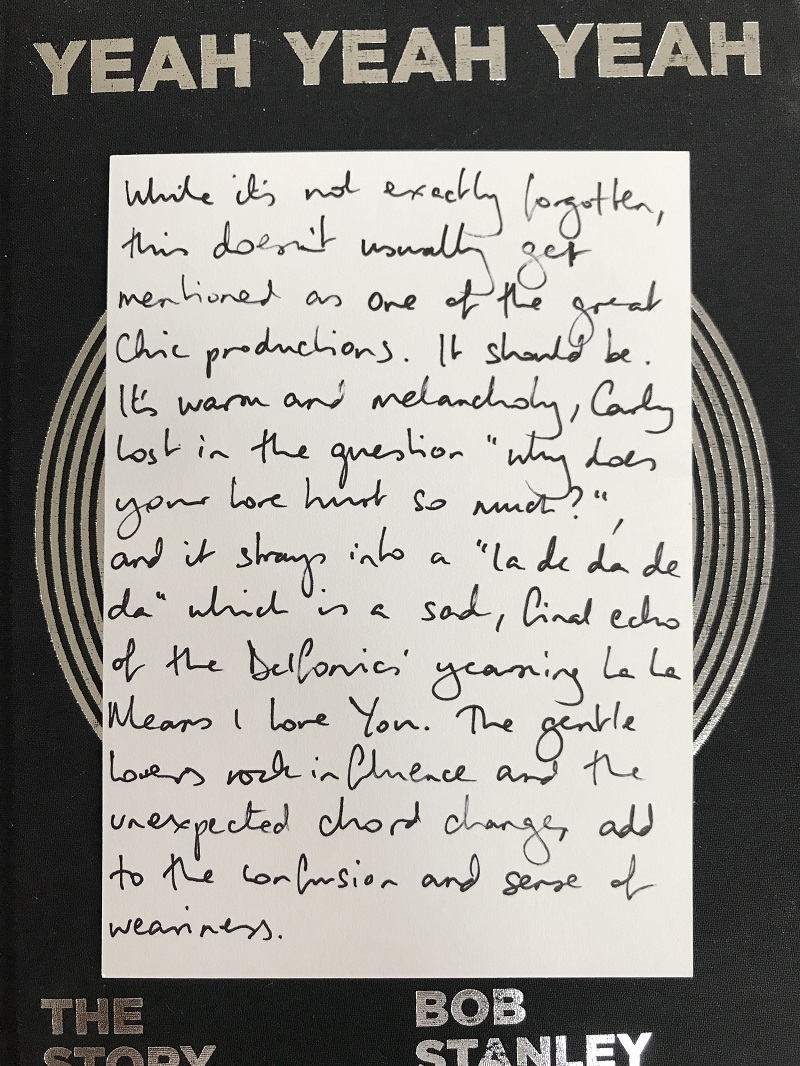 YEAH YEAH YEAH
While it's not exactly forgotten,
this doesn't usually get
mentioned as one of the great
Chic productions. It should be.
It's warm and melancholy, Carly
lost in the question "why does
your love hurt so much?",
and it strays into a "la de da de
da" which is a sad, final echo
of the Delfonics' yearning La La
Means I Love You. The gentle
lovers rock influence and the
unexpected chord changes add
to the confusion and sense of
weariness.
THE
STORY
BOB
STANLEY